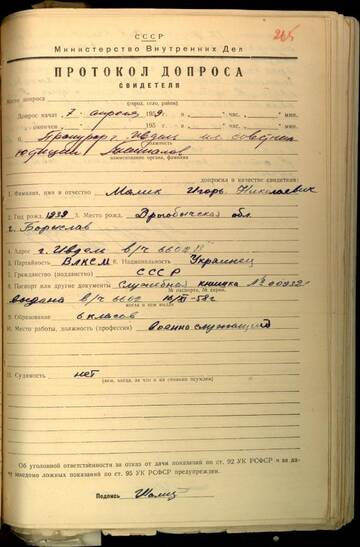 265
СССР
Министерство Внутренних Дел
ПРОТОКОЛ ДОПРОСА
СВИДЕТЕЛЯ
Место допроса
(город, село, район)
Допрос начат 7 апреля 1959. в " час. " мин.
" окончен 195 г. в " час. " мин.
Прокурор г. Ивдель мл советник
должность
юстиции
наименование органа, фамилия
допросил в качестве свидетеля:
1. Фамилия, имя и отчество Малик Игорь Николаевич
2. Год рожд. 1939 3. Место рожд. Дрогобычская обл.
г. Борислав
4. Адрес г. Ивдель в/ч 6602
5. Партийность ВЛКСМ 6. Национальность Украинец
7. Гражданство (подданство) СССР
8. Паспорт или другие документы Служебная книжка №
№ паспорта, № серия,
выдана в/ч 6602 58 г
когда и кем выдан
9. Образование 6 класов
10. Место работы, должность (профессия) Военнослужащий
11. Судимость нет
(кем, когда, за что и на сколько осужден)
Об уголовной ответственности за отказ от дачи показаний по ст. 92 УК РСФСР и за да-
чу заведомо ложных показаний по ст. 95 УК РСФСР предупрежден.
Подпись